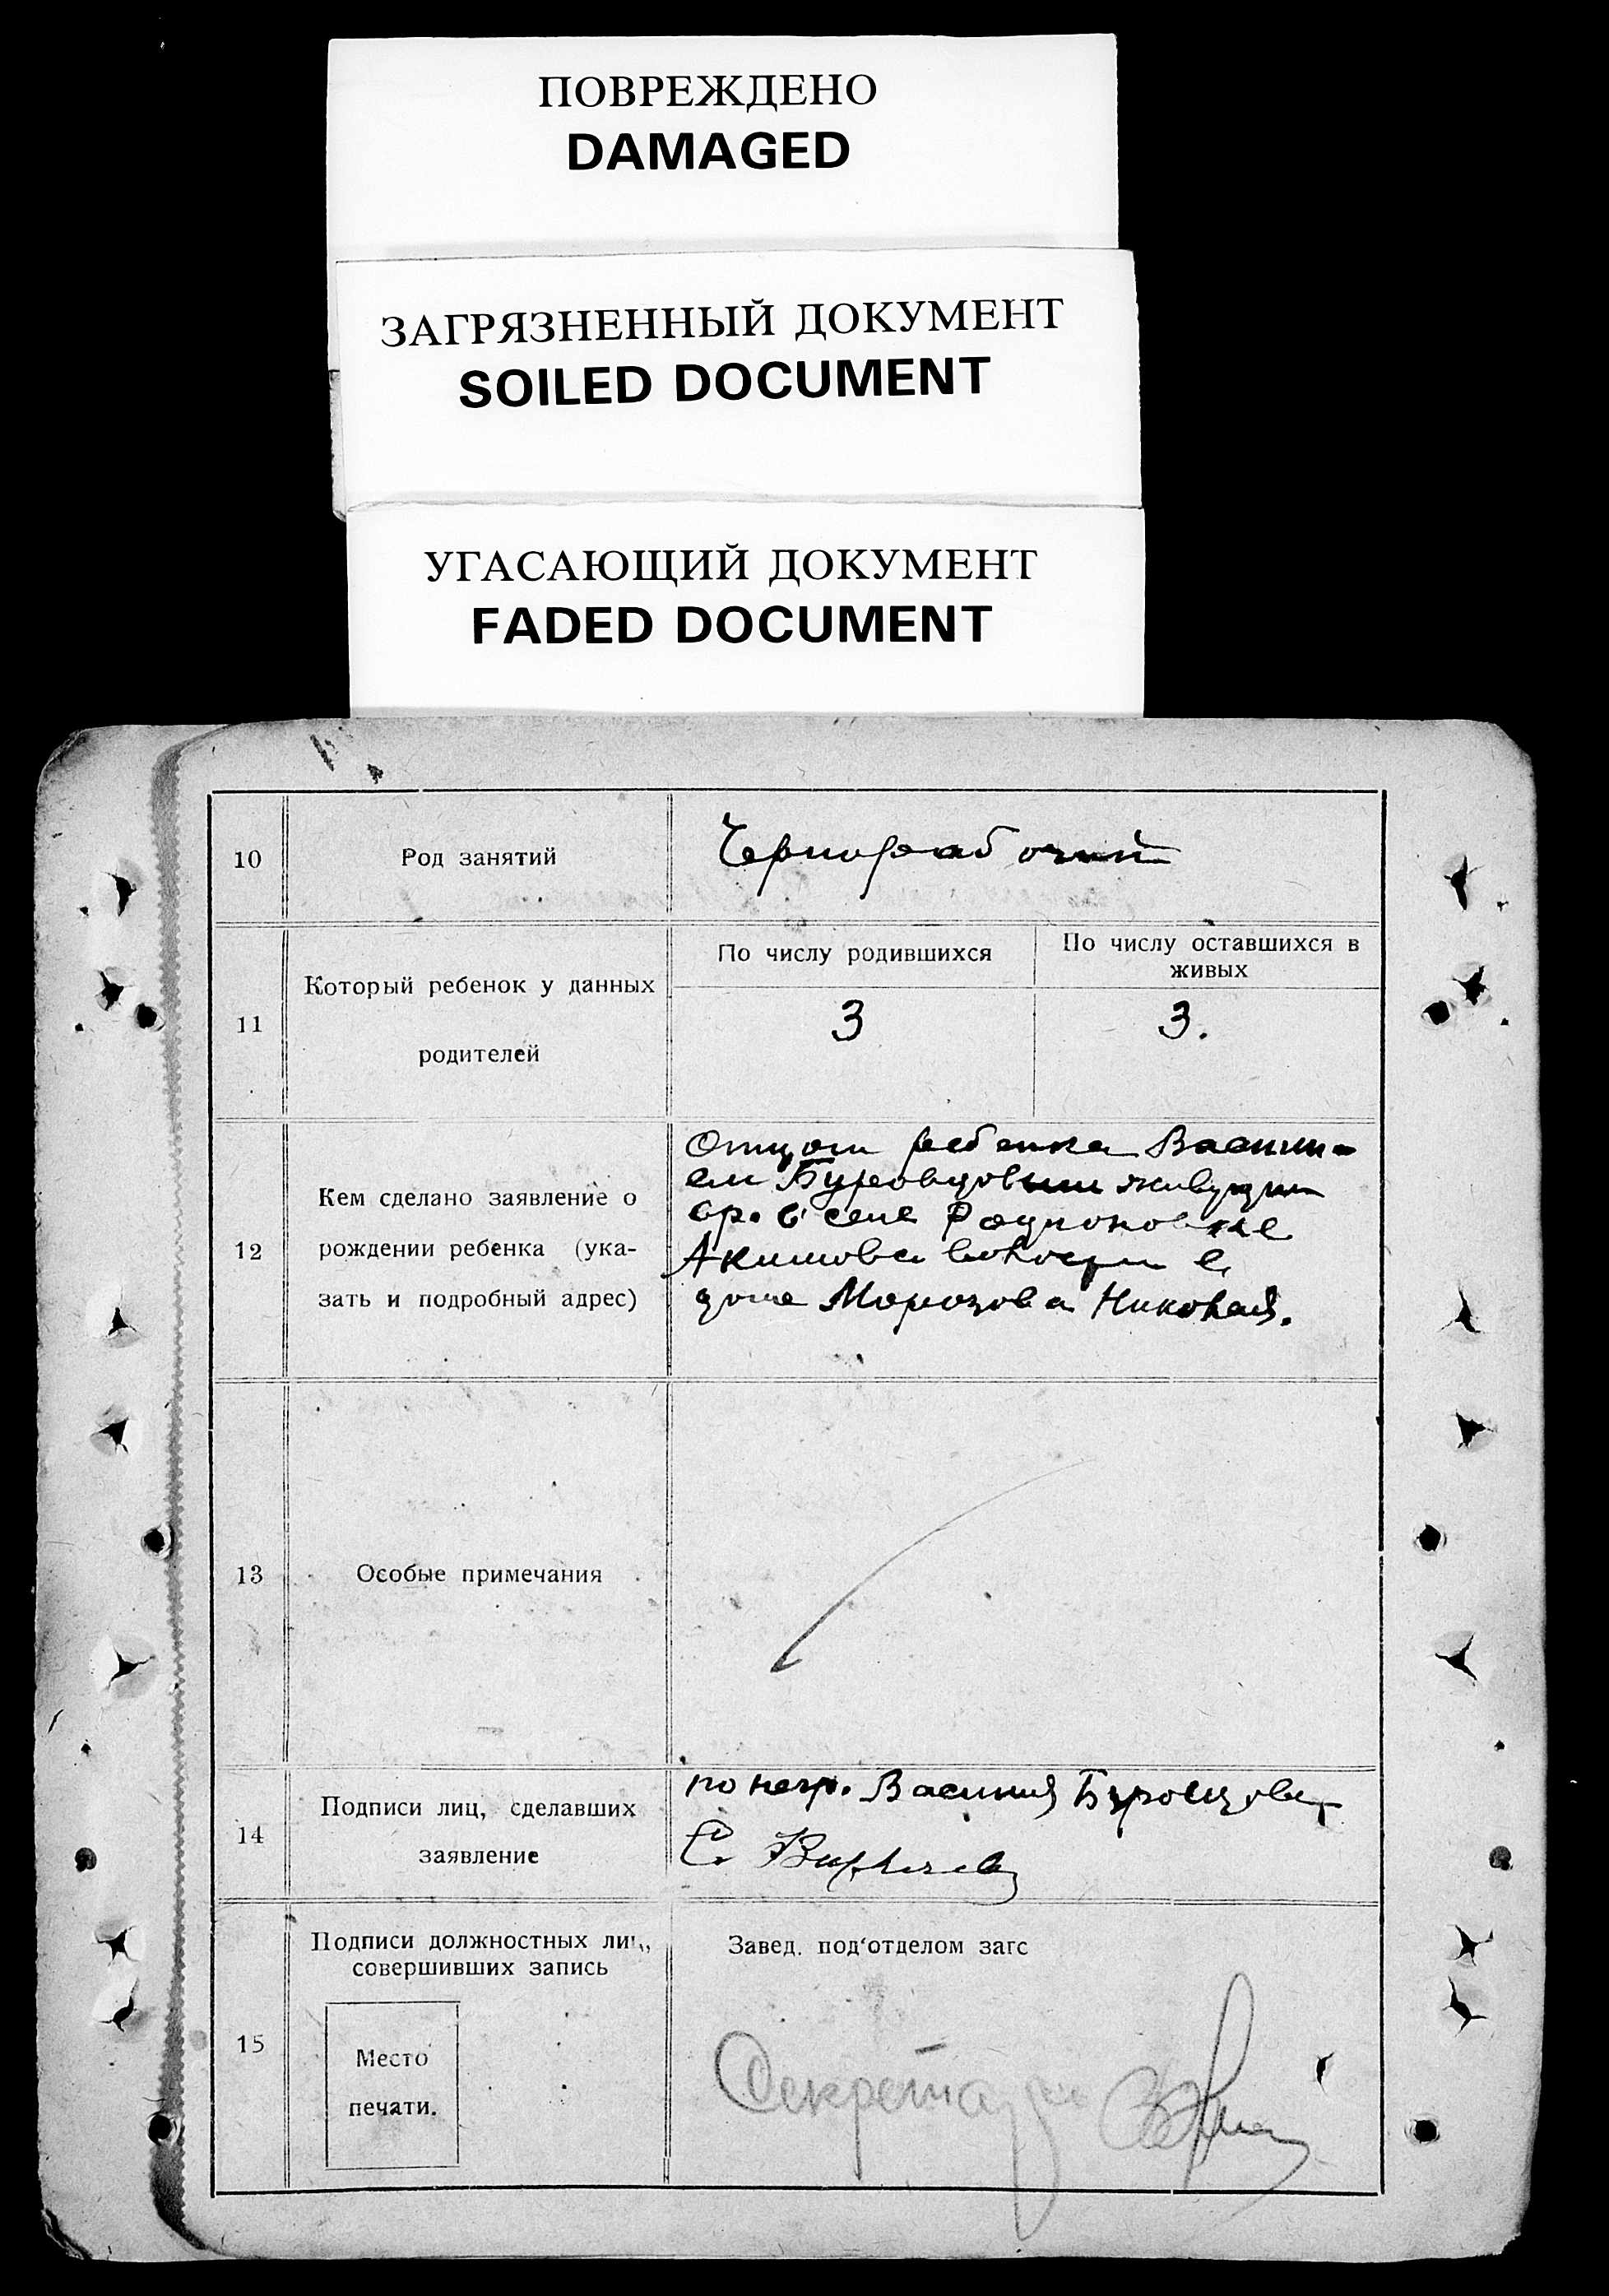 ПОВРЕЖДЕНО
DAMAGED
ЗАГРЯЗНЕННЫЙ ДОКУМЕНТ
SOILED DOCUMENT
УГАСАЮЩИЙ ДОКУМЕНТ
FADED DOCUMENT
10
Род занятий
Чернорабочий
11
Который ребенок у данных
родителей
По числу родившихся
По числу оставшихся в
живых
3
3.
12
Кем сделано заявление о
рождении ребенка (ука-
зать и подробный адрес)
Отцом ребенка Васили-
ем Буровцовым живущим
вр. в селе Родионовке
Акимова волости в
доме Морозова Николая.
13
Особые примечания
14
Подписи лиц, сделавших
заявление
по негр. Василия Буровцова
15
Подписи должностных лиц,
совершивших запись
Место
печати.
Завед. под'отделом загс
Секретарь